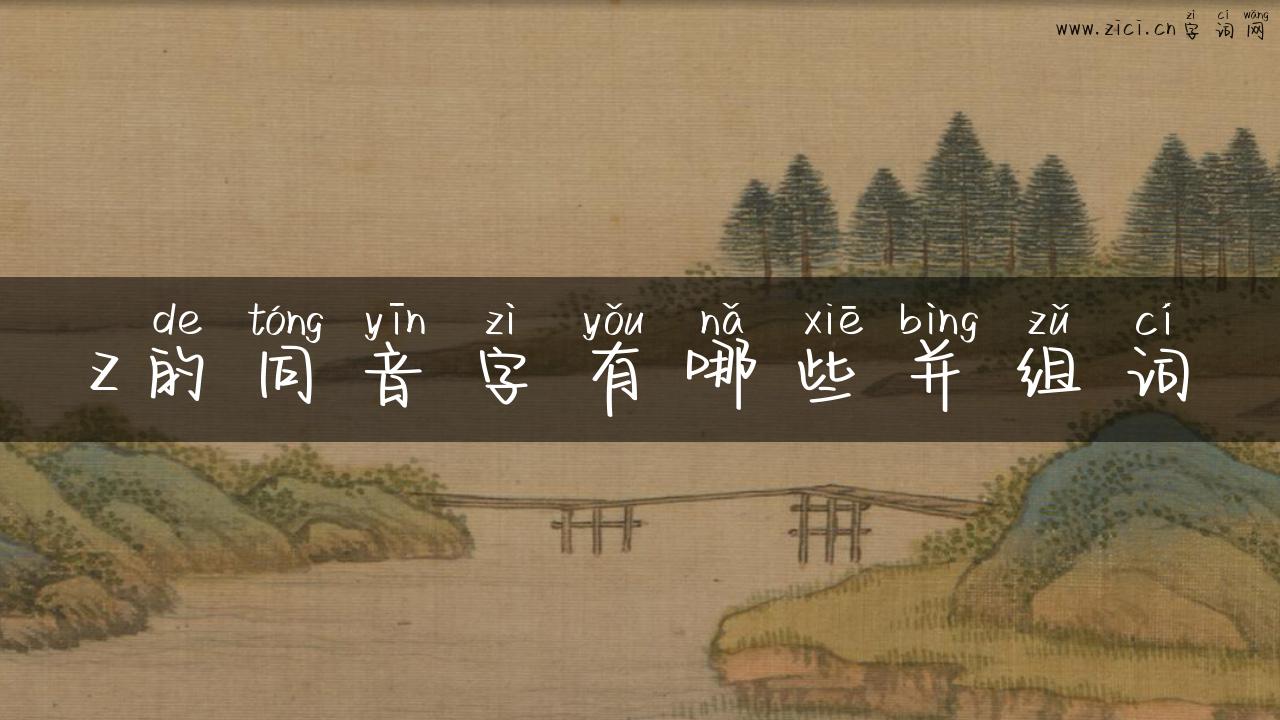 zì cí wǎng
www.zici.cn 字词网
de tóng yīn zì yǒu nǎ xiē bìng zǔ cí
z的同音字有哪些并组词